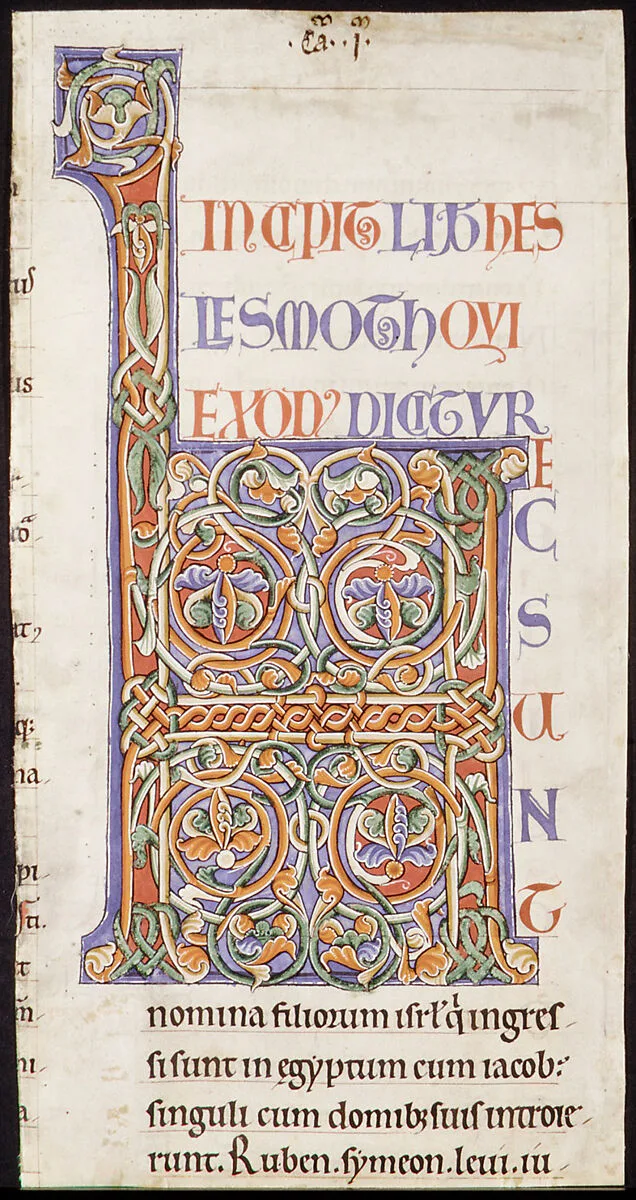 .Ca. .I.
INCIPIT LIB HES
LLESMOTH QVI
EXOD' DICITVR
H
E
C
S
U
N
T
nomina filiorum isrł q̇ ingres
si sunt in egyptum cum iacob:
singuli cum domibꝫ suis introie
runt. Ruben. symeon. leui. iu
us
us
pi
sti.